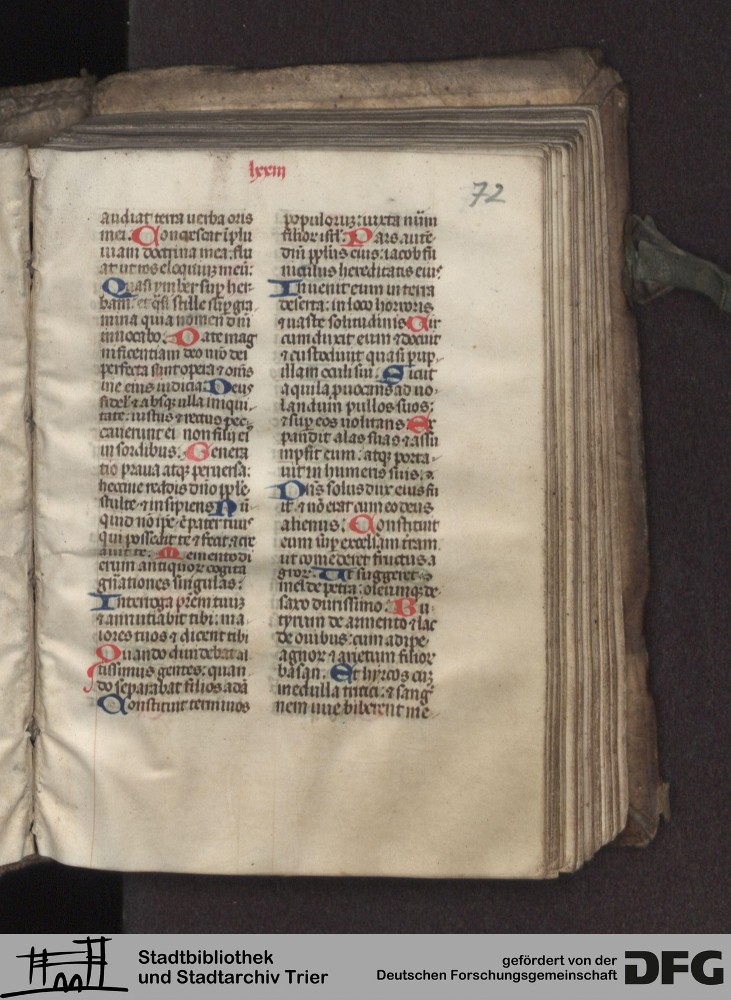 lxxiii
72
audiat terra uerba oris
mei. Concrescat ī pluuiam
doctrina mea: flu
at ut ros eloquiuz meū:
Quasi ymber suꝑ her
bam: et q̄si stille suꝑ gra
mina quia nomen dn̄i
inuocabo: Date mag
nificentiam deo nr̄o dei
perfecta sunt opera ⁊ om̄s
uie eius iudicia. Deus
fidel' ⁊ absq; ulla iniqui
tate: iustus ⁊ rectus pec
cauerunt ei ⁊ non filij ei'
in sordibus. Genera
tio praua atq; peruersa:
heccine reddis dn̄o pp̄le
stulte ⁊ insipiens Nū
quid nō ip̄e ē pater tuus
qui possedit te ⁊ fecit ⁊ cre
auit te. Memento di
erum antiquor cogita
gn̄ationes singulas:
Interroga pr̄em tuuz
⁊ annūtiabit tibi: ma
iores tuos ⁊ dicent tibi
Quando diuidebat al
tissimus gentes: quan
do separabat filios adā
Constituit terminos
populoruz: iuxta nūm
filior isr̄l. Pars aute
dn̄i pp̄lus eius: iacob fū
niculus hereditatis eius
Inuenit eum in terra
deserta: in loco horroris
⁊ uaste solitudinis Cir
cumduxit eum ⁊ docuit
⁊ custodiuit quasi pup
illam oculi sui. Sicut
aquila ꝓuocans ad uo
landum pullos suos:
⁊ suꝑ eos uolitans. Ex
pandit alas suas ⁊ assū
mpsit eum: atq; porta
uit in humeris suis.
Dn̄s solus dux eius fu
it: ⁊ nō erat cum eo deus
alienus: Constituit
eum suꝑ excelsam terram
ut comederet fructus a
gror. Ut suggeret
mel de petra: oleumq; de
saxo durissimo: Bu
tyrum de armento ⁊ lac
de ouibus: cum adipe
agnor ⁊ arietum filior
basan. Et hyrcos cuz
medulla tritici: ⁊ sang
nem uue biberent me
Stadtbibliothek
und Stadtarchiv Trier
gefördert von der
Deutschen Forschungsgemeinschaft
DFG